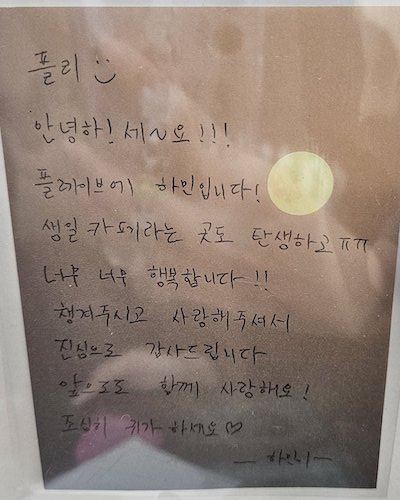 플리 :)
안녕하!세~요!!!
플레이브에 하민입니다!
생일 카페라는 곳도 탄생하고ㅠㅠ
너무 너무 행복합니다!!
챙겨주시고 사랑해주셔서
진심으로 감사드립니다
앞으로도 함께 사랑해요!
조심히 귀가 하세요♡
— 하민이 —